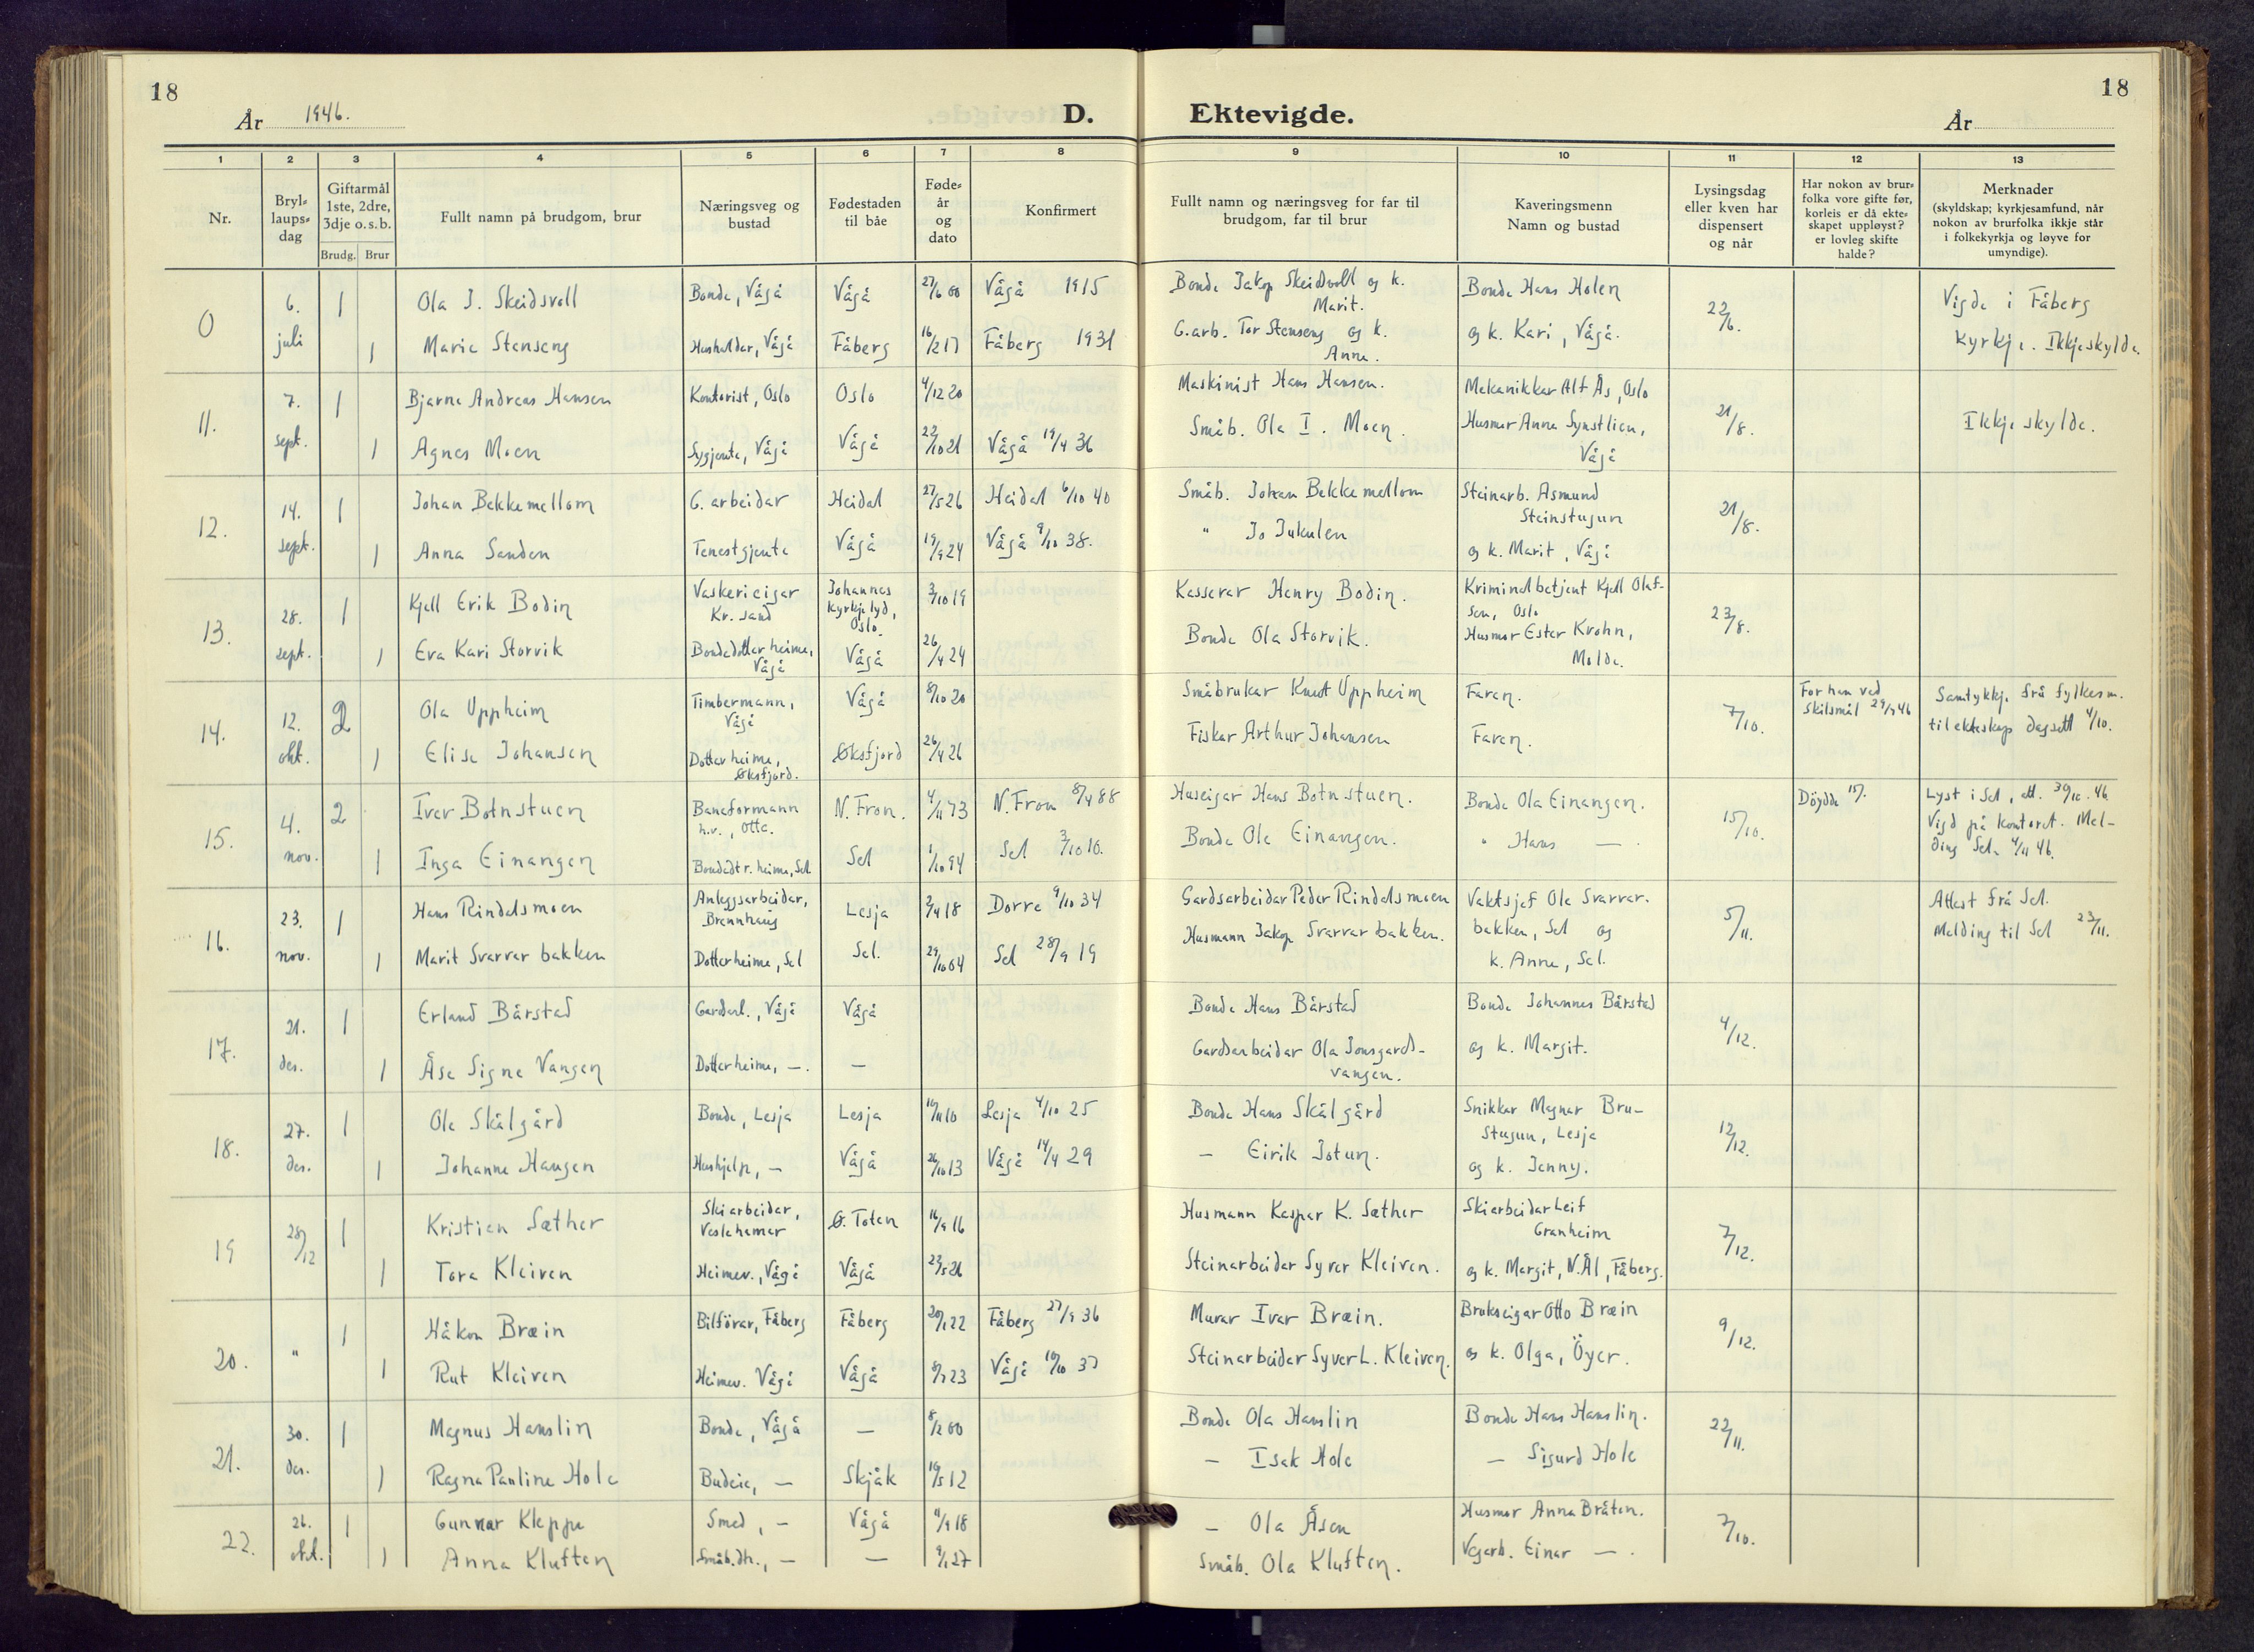 18
År 1946.
D.
Ektevigde.
År
18
1 2 3 4 5 6 7 8 9 10 11 12 13
Nr.
Bryl-
laups-
dag
Giftarmål
1ste, 2dre,
3dje o.s.b.
Brudg. Brur
Fullt namn på brudgom, brur
Næringsveg og
bustad
Fødestaden
til båe
Føde-
år
og
dato
Konfirmert
Fullt namn og næringsveg for far til
brudgom, far til brur
Kaveringsmenn
Namn og bustad
Lysingsdag
eller kven har
dispensert
og når
Har nokon av brur-
folka vore gifte før,
korleis er då ekte-
skapet uppløyst?
er lovleg skifte
halde?
Merknader
(skyldskap; kyrkjesamfund, når
nokon av brurfolka ikkje står
i folkekyrkja og løyve for
umyndige).
0 6. juli 1 Ola J. Skeidsvoll Bonde, Vågå Vågå 27/6 00 Vågå 1915 Bonde Jakop Skeidsvoll og k. Marit. Bonde Hans Holen 22/6. Vigde i Fåberg
1 Marie Stenseng Husheldar, Vågå Fåberg 16/2 17 Fåberg 1931 G.arb. Tor Stenseng og k. Anne. og k. Kari, Vågå. Kyrkje. Ikkje skylde.
11. 7. sept. 1 Bjarne Andreas Hansen Kontorist, Oslo Oslo 4/12 20 Maskinist Hans Hansen. Mekanikkar Alf Ås, Oslo 21/8. Ikkje skylde.
1 Agnes Moen Sygjente, Vågå Vågå 22/10 21 Vågå 19/4 36 Småb. Ola I. Moen. Husmor Anna Synstlien, Vågå
12. 14. sept. 1 Johan Bekkemellom G. arbeidar Heidal 27/5 26 Heidal 6/10 40 Småb. Johan Bekkemellom Steinarb. Asmund Steinstugun 21/8.
1 Anna Sanden Tenestgjente Vågå 19/9 24 Vågå 9/10 38. " Jo Jukulen og k. Marit, Vågå
13. 28. sept. 1 Kjell Erik Bodin Vaskerieigar Kr. sand Johannes kyrkjelyd, Oslo. 3/10 19 Kasserar Henry Bodin. Kriminalbetjent Kjell Olaf- sen, Oslo 23/8.
1 Eva Kari Storvik Bondedotter heime, Vågå Vågå 26/4 24 Bonde Ola Storvik. Husmor Ester Krohn, Molde.
14. 12. okt. 2 Ola Uppheim Timbermann, Vågå Vågå 8/10 20 Småbrukar Knut Uppheim Faren. 7/10. For han ved skilsmål 29/9 46 Samtykkje frå fylkesm. til ekteskap dagsett 4/10.
1 Elise Johansen Dotter heime, Øksfjord. Øksfjord 26/4 26 Fiskar Arthur Johansen Faren.
15. 4. nov. 2 Iver Botnstuen Baneformann h.v., Otta. N. Fron. 4/11 73 N. Fron 8/4 88 Huseigar Hans Botnstuen. Bonde Ola Einangen. 15/10. Döydde Lyst i Sel, att. 30/10. 46.
1 Inga Einangen Bondedtr. heime, Sel. Sel 1/10 94 Sel 3/10 10. Bonde Ola Einangen. " Hans — . Vigd på kontoret. Mel- ding Sel. 4/11 46.
16. 23. nov. 1 Hans Rindalsmoen Anleggsarbeidar, Brennhaug Lesja 2/4 18 Dovre 9/10 34 Gardsarbeidar Peder Rindalsmoen Vaktsjef Ole Svarvar- bakken, Sel og 5/11. Attest frå Sel.
1 Marit Svarvarbakken Dotter heime, Sel Sel. 29/10 04 Sel 28/9 19 Husmann Jakop Svarvarbakken. k. Anne, Sel. Melding til Sel 23/11.
17. 21. des. 1 Erland Bårstad Gardarb., Vågå Vågå Bonde Hans Bårstad Bonde Johannes Bårstad 4/12.
1 Åse Signe Vangen Dotter heime, —. — Gardsarbeidar Ola Jonsgards- vangen. og k. Margit.
18. 27. des. 1 Ola Skålgård Bonde, Lesja Lesja 10 Lesja 4/10 25 Bonde Hans Skålgård Snikkar Magnar Bru- stugun, Lesja 12/12.
1 Johanne Haugen Hushjelp, — Vågå 26/10 13 Vågå 14/4 29 — Eirik Jotun. og k. Jenny.
19 28/12 1 Kristian Sæther Skiarbeidar, Veslehamar Ø. Toten 16/9 16 Husmann Kaspar K. Sæther Skiarbeidar Leif Granheim 7/12.
1 Tora Kleiven Heimev., Vågå Vågå 22/5 26 Steinarbeidar Syver Kleiven. og k. Margit, N. Ål, Fåberg.
20. " 1 Håkon Bræin Bilförar, Fåberg Fåberg 20/1 22 Fåberg 27/9 36 Murar Ivar Bræin. Brukseigar Otto Bræin 9/12.
1 Rut Kleiven Heimev. Vågå Vågå 23 Vågå 10/10 37 Steinarbeidar Syver L. Kleiven. og k. Olga, Öyer.
21. 30. des. 1 Magnus Hanslin Bonde, Vågå — 8/2 00 Bonde Ola Hanslin Bonde Hans Hanslin. 22/11.
1 Ragna Pauline Hole Budeie, — Skjåk 19/5 12 — Isak Hole — Sigurd Hole
22. 26. okt. 1 Gunnar Kleppe Smed, — Vågå 11/9 18 — Ola Åsen Husmor Anna Bråten. 7/10.
1 Anna Kluften Småb.dtr., — — 9/1 27 Småb. Ola Kluften. Vegarb. Einar — .